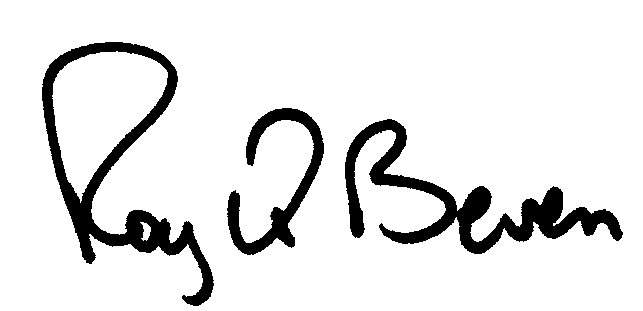 Roy Q Beven